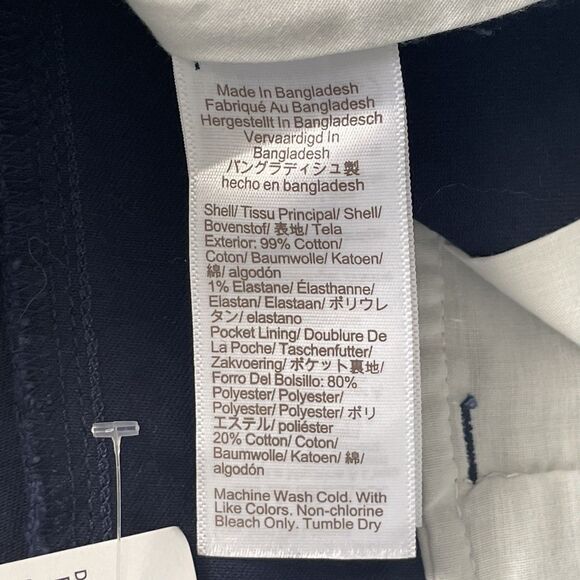 Made In Bangladesh
Fabriqué Au Bangladesh
Hergestellt In Bangladesch
Vervaardigd In
Bangladesh
バングラディシュ製
hecho en bangladesh
Shell/ Tissu Principal/ Shell/
Bovenstof/ 表地/ Tela
Exterior: 99% Cotton/
Coton/ Baumwolle/ Katoen/
綿/ algodón
1% Elastane/ Élasthanne/
Elastan/ Elastaan/ ポリウレ
タン/ elastano
Pocket Lining/ Doublure De
La Poche/ Taschenfutter/
Zakvoering/ ポケット裏地/
Forro Del Bolsillo: 80%
Polyester/ Polyester/
Polyester/ Polyester/ ポリ
エステル/ poliéster
20% Cotton/ Coton/
Baumwolle/ Katoen/ 綿/
algodón
Machine Wash Cold. With
Like Colors. Non-chlorine
Bleach Only. Tumble Dry